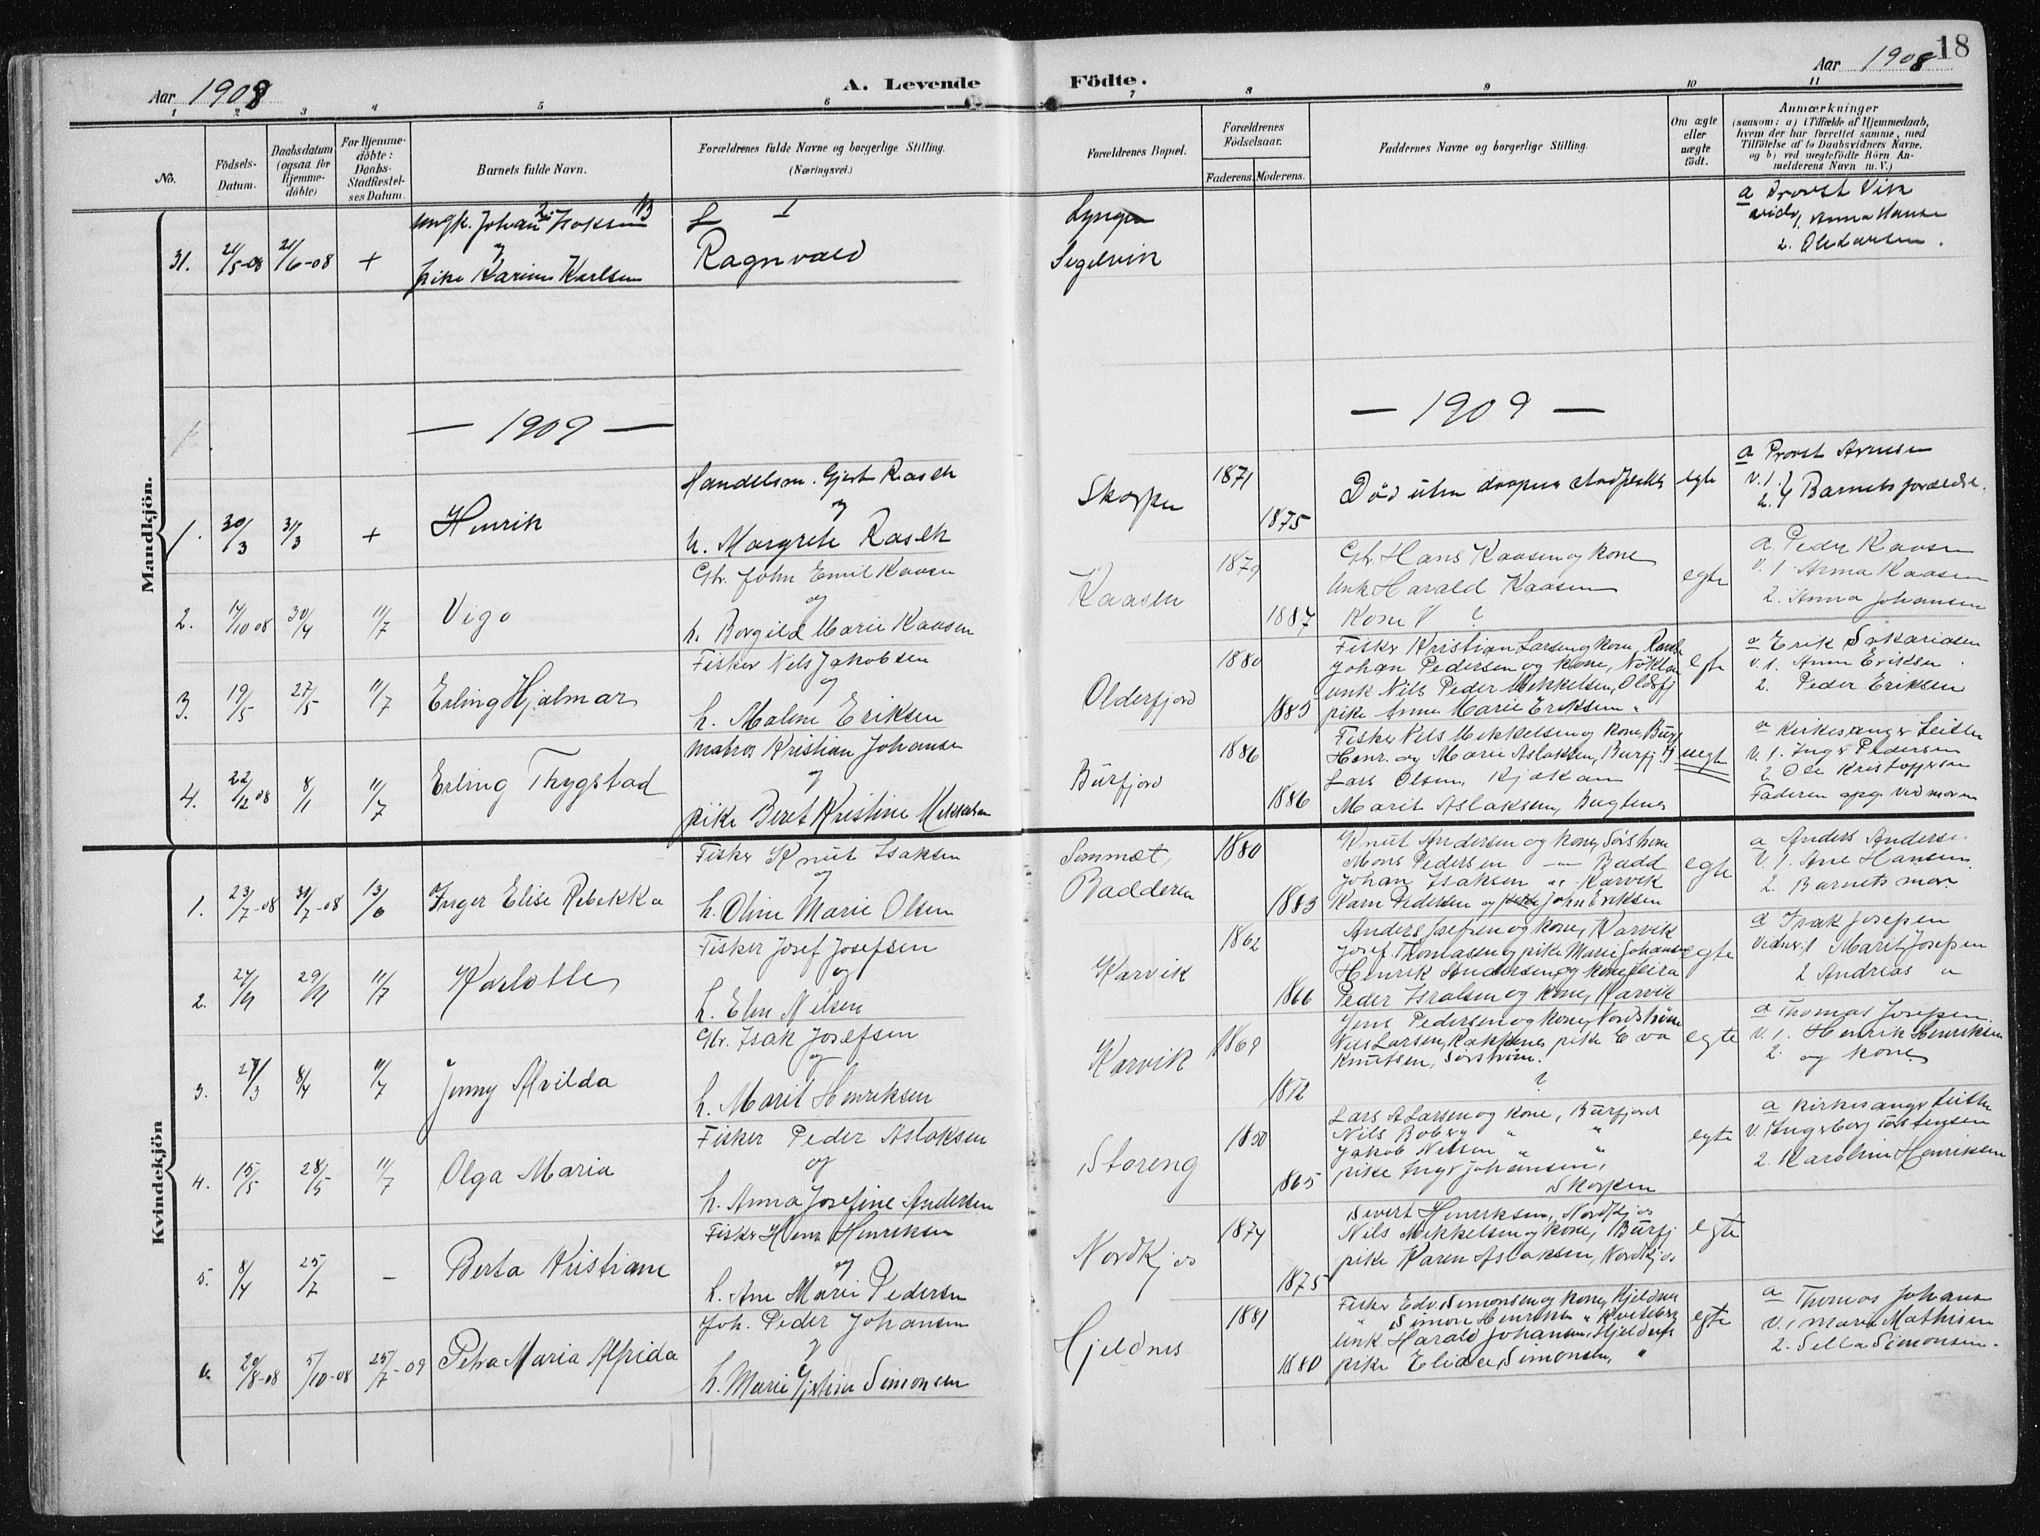 Aar 1908
A. Levende
Födte.
Aar 1908
18
1 2 3 4 5 6 7 8 9 10 11
No.
Födsels-
Datum.
Daabsdatum
(ogsaa for
Hjemme-
döbte)
For Hjemme-
döbte:
Daabs-
Stadfæstel-
ses Datum.
Barnets fulde Navn.
Forældrenes fulde Navne og borgerlige Stilling.
(Næringsvei.)
Forældrenes Bopæl.
Forældrenes
Födselsaar.
Faderens. Moderens.
Faddernes Navne og borgerlige Stilling.
Om ægte
eller
uægte
födt.
Anmærkninger
(saasom: a) i Tilfælde af Hjemmedaab,
hvem der har forrettet samme, med
Tilföielse af to Daabsvidners Navne.
og b) ved uægtefödte Börn An-
melderens Navn m. V.)
Mandkjön.
31. 21/5-08 21/6-08 +
ungk. Johan Isaksen
og
pike Karine Karlsen
Ragnvald
Lyngen
Segelvik
a Provst Vik
vidn. Anna Hansen
2. Ole Larsen.
— 1909 —
— 1909 —
1. 30/3 31/3 +
Henrik
Handelsm. Gjert Rasch
og
h. Margrete Rasch
Skorpen
1871
1875
Död uten daapens stadfestelse
egte
a Provst Arnesen
v. 1. } Barnets forældre.
2.
2. 17/10 08 30/4 11/7
Vigo
Gbr. John Emil Kaasen
og
h. Borgild Marie Kaasen
Kaasen
1879
1887
Gbr. Hans Kaasen og kone
unk Harald Kaasen
Kone ?
egte
a. Peder Kaasen
v. 1. Anna Kaasen
2. Anna Johansen
3. 19/5 27/5 11/7
Erling Hjalmar
Fisker Nils Jakobsen
og
h. Malene Eriksen
Olderfjord
1880
1885
Fisker Kristian Larsen og kone,
Johan Pedersen og kone,
unk Nils Peder Mikkelsen, Oldfj
pike Anne Marie Eriksen "
egte
a Erik Sakariasen
v. 1. Anne Eriksen.
2. Peder Eriksen
4. 22/12 08 8/1 11/7
Erling Thygstad
matros Kristian Johansen
og
pike Beret Kristine Mikkelsen
Burfjord
1886
1886
Fisker Nils Mikkelsen og kone, Burfj
Henr. og Marie Aslaksen, Burfj.
Lars Olsen,
Marit Aslaksen, Bugtenes
uegte
a Kirkesanger Seitlu
v. 1. Inger Pedersen
2. Ole Kristoffersen
Faderen opg. ved moren
Kvindekjön
1. 23/7-08 31/7-08 13/6
Inger Elise Rebekka
Fisker Knut Isaksen
og
h. Oline Marie Olsen
Badderen
1880
1883
Knut Andersen og kone, Sörström
Mons Pedersen — Badd
Johan Isaksen " Karvik
Karn Pedersen og John Eriksen
egte
a Anders Andersen
v. 1. Ane Hansen.
2. Barnets mor
2.
Karlotte
Fisker Josef Josefsen
og
h. Elen Nilsen
Karvik
1862
1866
Anders Josefsen og kone, Karvik
Josef Thomassen, pike Marie Johansen
Henrik Andersen og kone,
Peder Israelsen og kone, Karvik
egte
a Isak Josefsen
vidner 1 Marit Josefsen
2 Andreas "
3. 27/3 8/4 11/7
Jenny Alvilda
Gbr. Isak Josefsen
og
h. Marit Henriksen
Karvik
1869
1872
Jens Pedersen og kone, Nordström
Nils Larsen, pike Eva
Knutsen, Sörström.
?
egte
a Thomas Josefsen
v. 1. Henrik Henriksen
2. og kone.
4. 15/5 28/5 11/7
Olga Maria
Fisker Peder Aslaksen
og
h. Anna Josefine Andersen
Storeng
1865
Lars A Larsen og kone, Burfjord
Nils Boberg " "
Jakob Nilsen " "
pike Inger Johansen,
Skorpen
egte
a Kirkesanger Seitlu
v. Ingeborg
2. Karoline Henriksen
5. 8/4 25/7 —
Berta Kristiane
Fisker Hans Henriksen
og
h. Ane Marie Pedersen
Nordkjos
1874
1875
Sivert Henriksen, Nordkjos
Nils Mikkelsen og kone, Burfj
pike Karen Aslaksen, Nordkjos
egte
6. 20/8-08 5/10-08 25/7-09
Petra Maria Alfrida
Joh. Peder Johansen
og
h. Marie Simonsen
Hjeldnes
1881
1880
Fisker Edv. Simonsen og kone, Hjeldnes
" Simon Henriksen "
unk Harald Johansen, Hjeldnes
pike Elida Simonsen, "
egte
a Thomas Johans
v. 1 Marie Mathisen
2. Sella Simonsen.